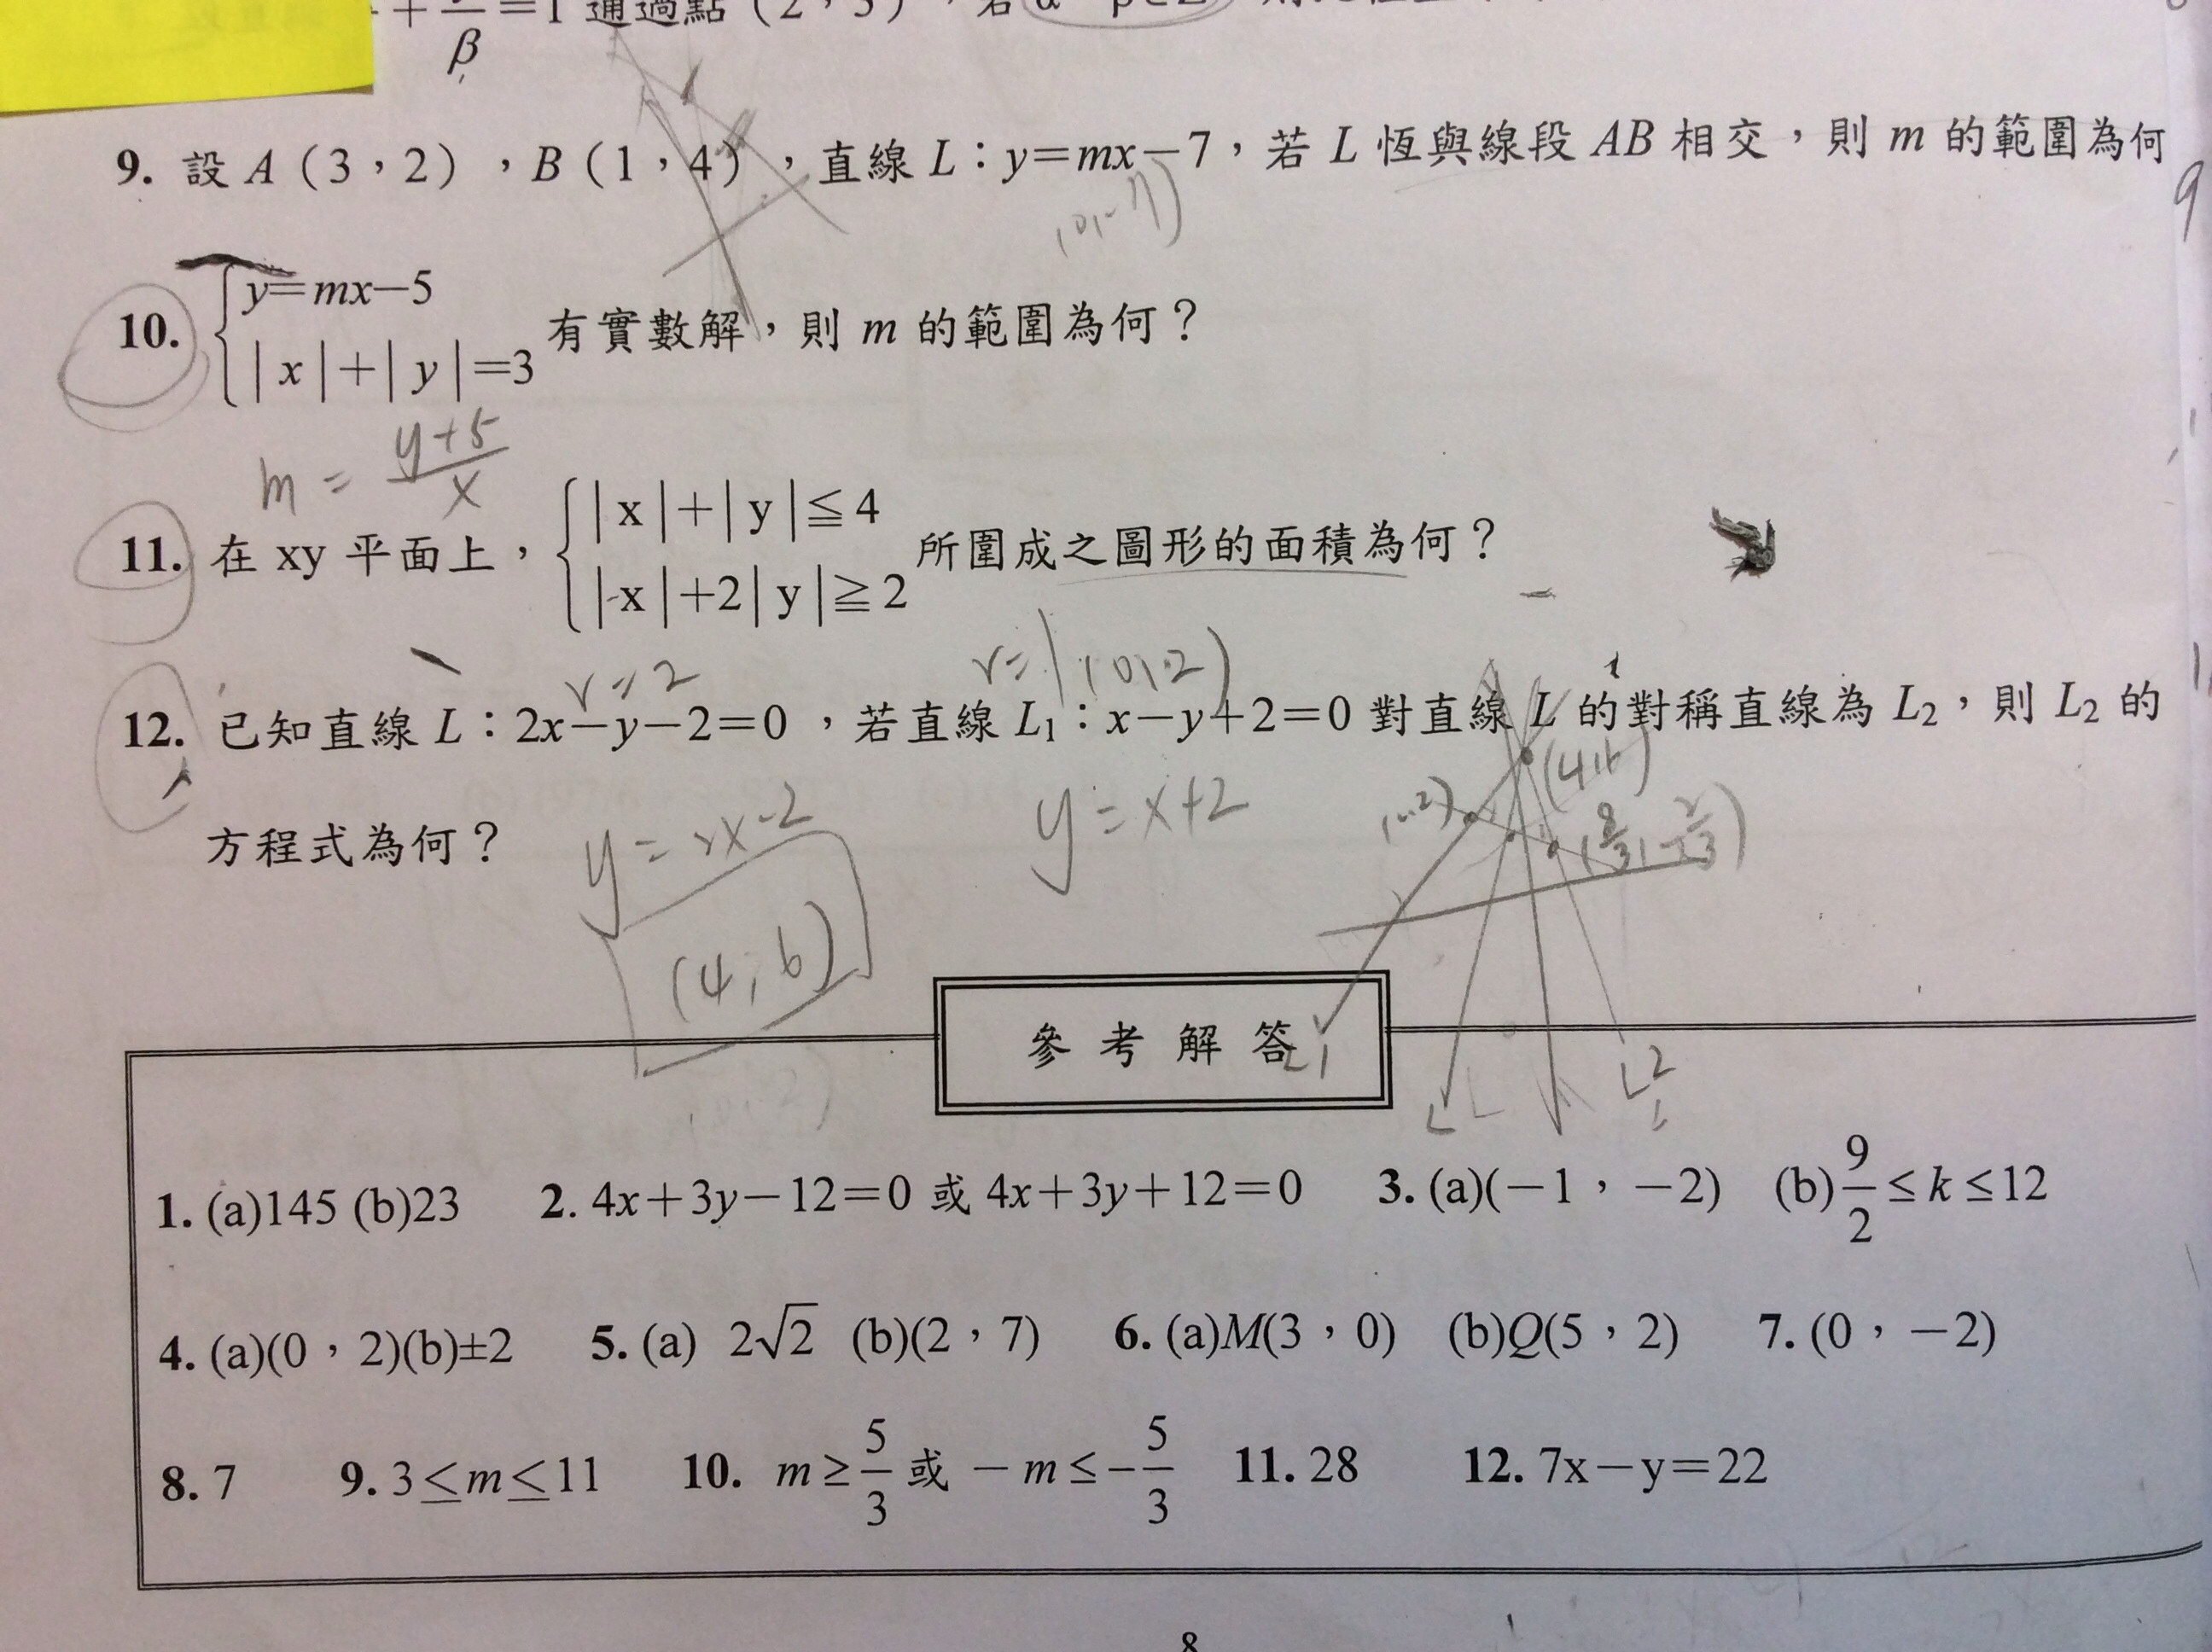 + β =1 通過點（2，3），若
9. 設 A（3，2），B（1，4），直線 L：y=mx−7，若 L 恆與線段 AB 相交，則 m 的範圍為何
(0,-7)
9
10. { y=mx−5
|x|+|y|=3 有實數解，則 m 的範圍為何？
m = y+5 / x
11. 在 xy 平面上，{ |x|+|y|≦4
|x|+2|y|≧2 所圍成之圖形的面積為何？
(0,2)
12. 已知直線 L：2x−y−2=0，若直線 L₁：x−y+2=0 對直線 L 的對稱直線為 L₂，則 L₂ 的
方程式為何？
y=2x-2
y=x+2
(4,6)
(4,6)
參考解答
L1
L
L2
1. (a)145 (b)23 2. 4x+3y−12=0 或 4x+3y+12=0 3. (a)(−1，−2) (b)9/2≤k≤12
4. (a)(0，2)(b)±2 5. (a) 2√2 (b)(2，7) 6. (a)M(3，0) (b)Q(5，2) 7. (0，−2)
8. 7 9. 3≤m≤11 10. m≥5/3 或 −m≤−5/3 11. 28 12. 7x−y=22
8